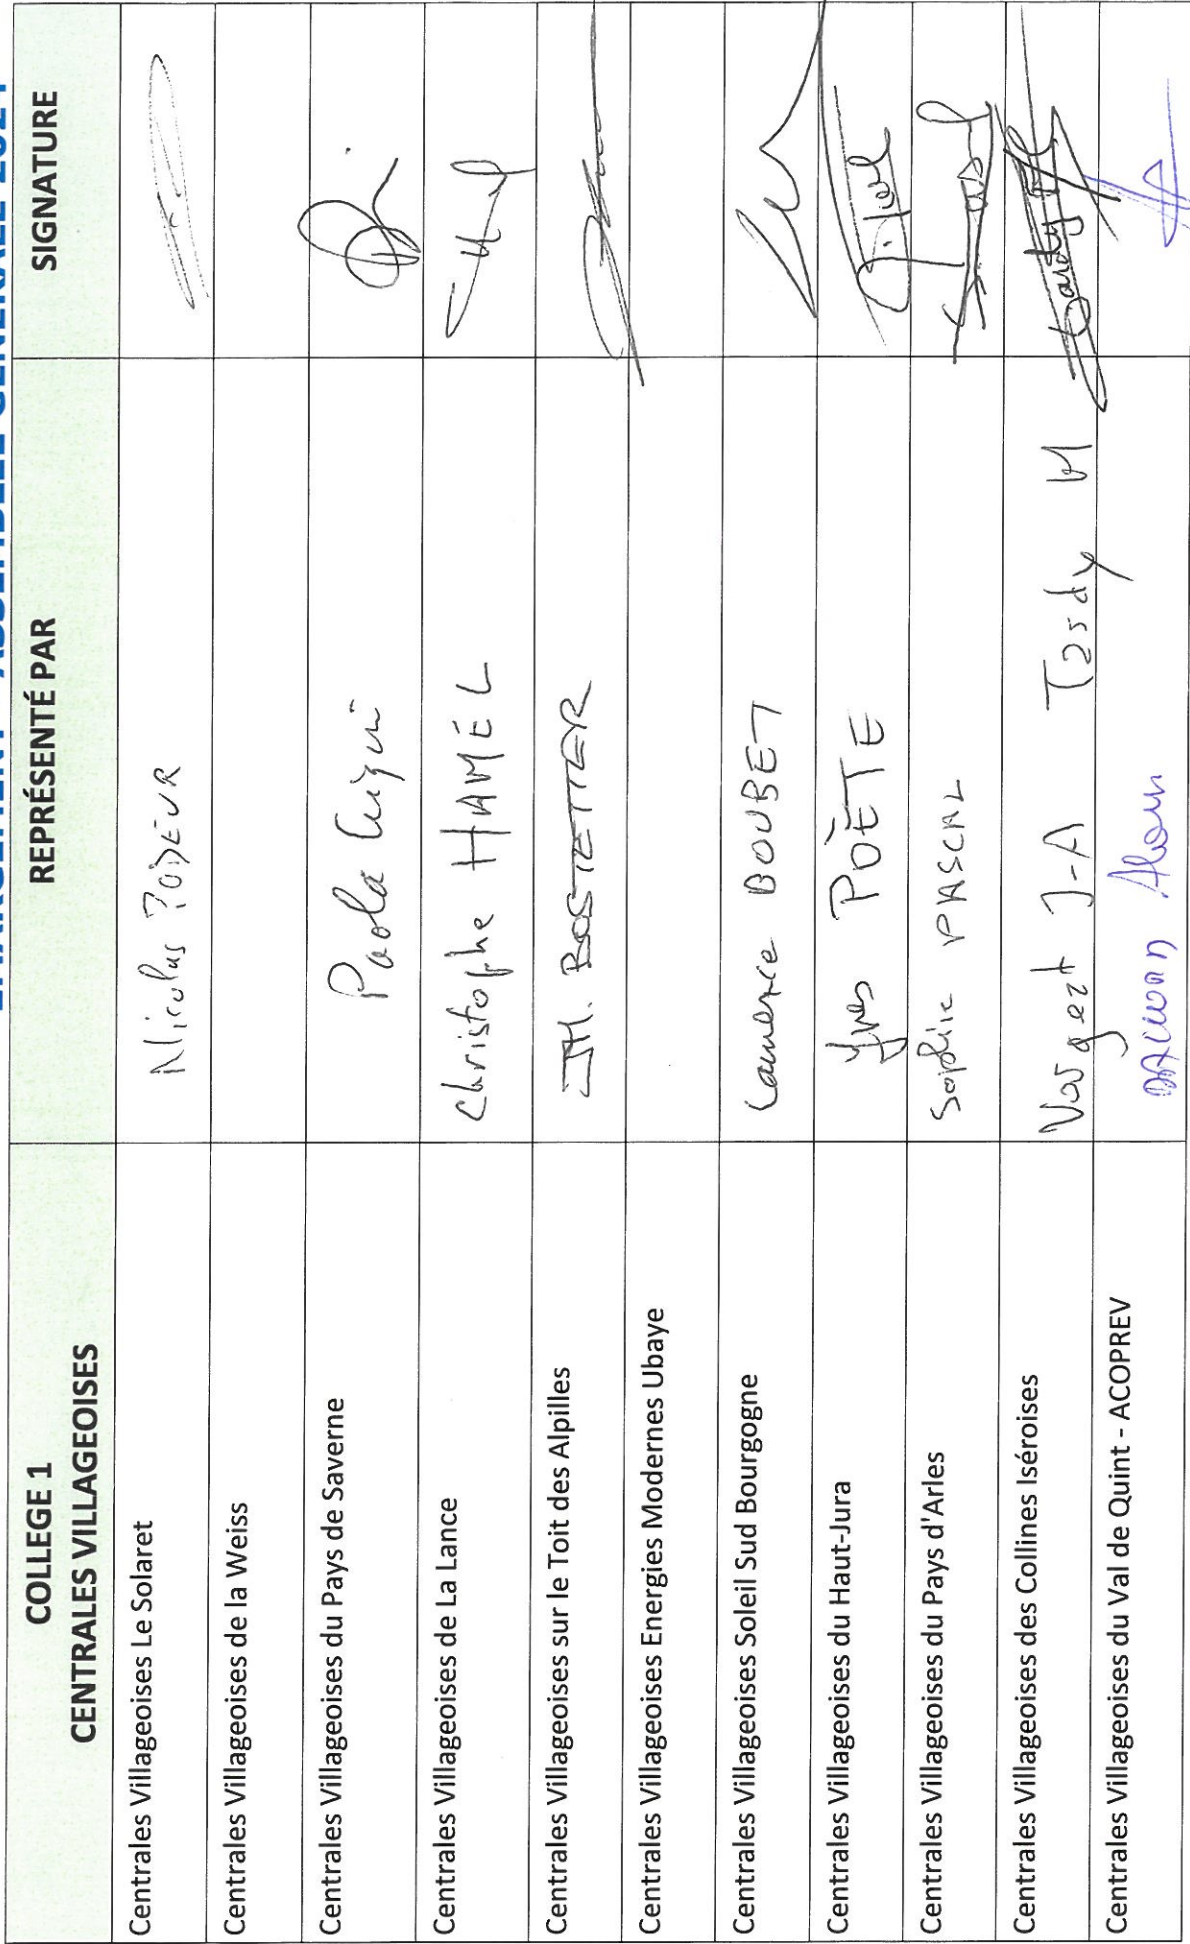 COLLEGE 1
CENTRALES VILLAGEOISES
REPRÉSENTÉ PAR
SIGNATURE
Centrales Villageoises Le Solaret
Nicolas
Centrales Villageoises de la Weiss
Centrales Villageoises du Pays de Saverne
Paola
Centrales Villageoises de La Lance
Christophe HAMEL
Centrales Villageoises sur le Toit des Alpilles
JM. BOSTETTER
Centrales Villageoises Energies Modernes Ubaye
Centrales Villageoises Soleil Sud Bourgogne
Laurence BOUBET
Centrales Villageoises du Haut-Jura
Yves POÈTE
Centrales Villageoises du Pays d'Arles
Sophie PASCAL
Centrales Villageoises des Collines Iséroises
J-A
Centrales Villageoises du Val de Quint - ACOPREV
Alain